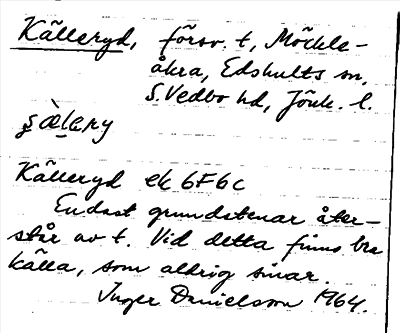 Källeryd, försv. t, Möckle-
åkra, Edshults sn,
S. Vedbo hd, Jönk. l.
Källeryd ek 6F6c
Endast grundstenar åter-
står av t. Vid detta finns bra
källa, som aldrig sinar.
Inger Danielsson 1964.